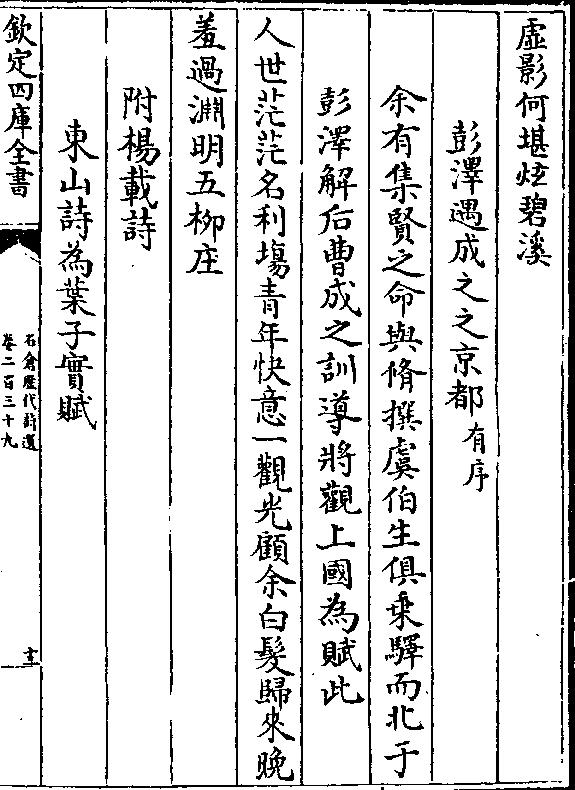 虛影何堪炫碧溪
彭澤遇成之之京都有序
余有集賢之命與脩撰虞伯生俱乗驛而北于
彭澤解后曹成之訓導將觀上國為賦此
人世茫茫名利塲青年快意一觀光顧余白髮歸來晚
羞過淵明五柳庄
附楊載詩
東山詩為葉子實賦
欽定四庫全書
石倉歷代詩選
卷二百三十九
十三